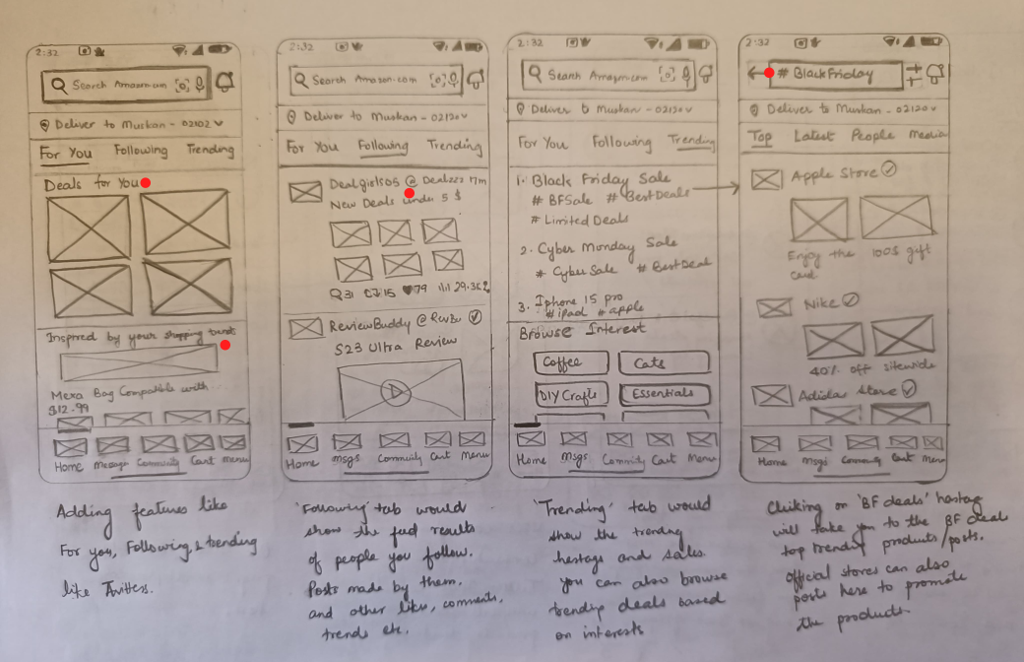 2:32
Search Amazon.com
Deliver to Muskan - 02102
For You Following Trending
Deals for You
Inspired by your shopping
Mexa Bag Compatible with
$12.99
Home Message Community Cart Menu
Adding features like
For you, Following, & trending
like Twitter.
2:32
Search Amazon.com
Deliver to Muskan - 02120
For You Following Trending
Dealgirls05 @ Dealzzz 17m
New Deals under 5 $
31 15 79 29.3k
ReviewBuddy @
S23 Ultra Review
Home Msgs Community Cart Menu
'Following' tab would
show the fed results
of people you follow.
Posts made by them,
and other likes, comments,
trends etc.
2:32
Search Amazon.com
Deliver to Muskan - 02120
For You Following Trending
1. Black Friday Sale
# BFSale # BestDeals
# Limited Deals
2. Cyber Monday Sale
# CyberSale # BestDeal
3. Iphone 15 pro
# ipad # apple
Browse Interest
Coffee Cats
DIY Crafts Essentials
Home Msgs Community Cart Menu
'Trending' tab would
show the trending
hestags and sales.
you can also browse
trending deals based
on interests
2:32
# BlackFriday
Deliver to Muskan - 02120
Top Latest People Media
Apple Store
Enjoy the 100$ gift
card
Nike
40% off sitewide
Adidas Store
Home Msgs Community Cart Menu
Clicking on 'BF deals' hastag
will take you to the BF deal
top trending products/posts.
official stores can also
posts here to promote
the products.